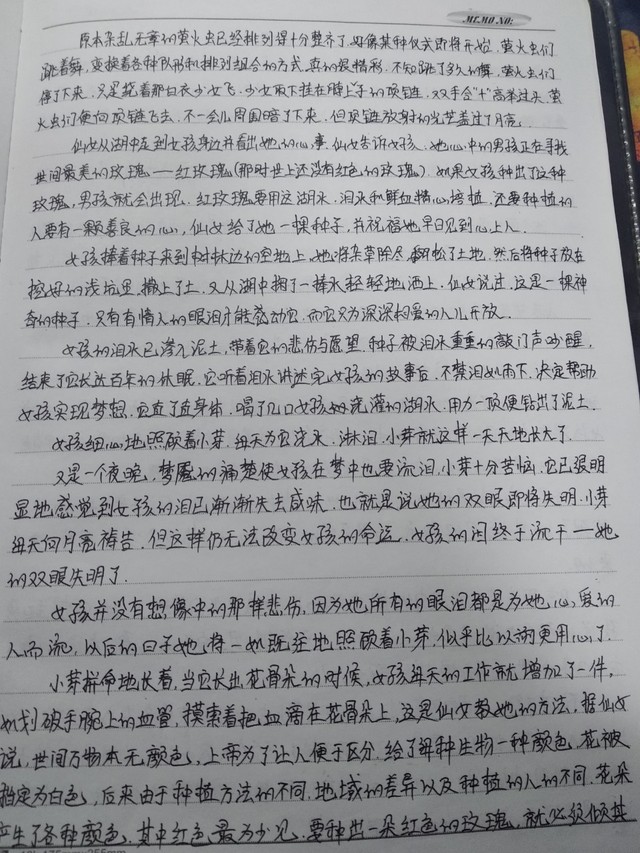 MEMO NO:
原本杂乱无章的萤火虫已经排列得十分整齐了,好像某种仪式即将开始,萤火虫们
跳着舞,变换着各种队形和排列组合的方式,真的很精彩,不知跳了多久的舞,萤火虫们
停了下来,只是绕着那白衣少女飞,少女取下挂在脖子上的项链,双手合十高举过头,萤
火虫们便向项链飞去,不一会儿周围暗了下来,但项链放射的光芒盖过了月亮.
仙女从湖中走到女孩身边并看出她的心事,仙女告诉女孩,她心中的男孩正在寻找
世间最美的玫瑰——红玫瑰(那时世上还没有红色的玫瑰).如果女孩种出了这种
玫瑰,男孩就会出现.红玫瑰要用这湖水,泪水和鲜血精心培植,还要种植的
人要有一颗善良的心,仙女给了她一棵种子,并祝福她早日见到心上人.
女孩捧着种子来到树林边的空地上,她将杂草除尽,翻松了土地,然后将种子放在
挖好的浅坑里,撒上了土,又从湖中掬了一捧水轻轻地洒上,仙女说过,这是一棵神
奇的种子,只有有情人的眼泪才能感动它,而它只为深深相爱的人儿开放.
女孩的泪水已渗入泥土,带着它的悲伤与愿望,种子被泪水重重的敲门声吵醒,
结束了它长达百年的休眠,它听着泪水讲述完女孩的故事后,不禁泪如雨下,决定帮助
女孩实现梦想,它直了直身体,喝了几口女孩浇灌的湖水,用力一顶便钻出了泥土.
女孩细心地照顾着小芽,每天为它浇水,淋泪,小芽就这样一天天地长大了.
又是一个夜晚,梦魇的痛楚使女孩在梦中也要流泪,小芽十分苦恼,它已很明
显地感觉到女孩的泪已渐渐失去咸味,也就是说她的双眼即将失明,小芽
每天向月亮祷告,但这样仍无法改变女孩的命运,女孩的泪终于流干——她
的双眼失明了.
女孩并没有想像中的那样悲伤,因为她所有的眼泪都是为她心爱的
人而流,以后的日子她将一如既往地照顾着小芽,似乎比以前更用心了.
小芽拼命地长着,当它长出花骨朵的时候,女孩每天的工作就增加了一件,
划破手腕上的血管,摸索着把血滴在花骨朵上,这是仙女教她的方法,据仙女
说,世间万物本无颜色,上帝为了让人便于区分,给了每种生物一种颜色,花被
指定为白色,后来由于种植方法的不同,地域的差异以及种植的人的不同,花朵
产生了各种颜色,其中红色最为少见,要种出一朵红色的玫瑰,就必须倾其